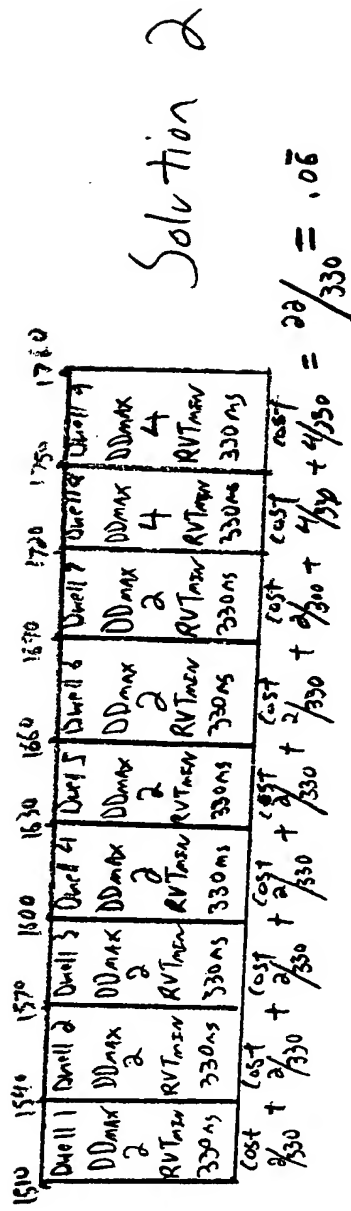 Solution 2
1510 1540 1570 1600 1630 1660 1670 1720 1750 1780
Dwell 1 Dwell 2 Dwell 3 Dwell 4 Dwell 5 Dwell 6 Dwell 7 Dwell 8 Dwell 9
DDMAX DDMAX DDMAX DDMAX DDMAX DDMAX DDMAX DDMAX DDMAX
2 2 2 2 2 2 2 4 4
RVTMIN RVTMIN RVTMIN RVTMIN RVTMIN RVTMIN RVTMIN RVTMIN RVTMIN
330ms 330ms 330ms 330ms 330ms 330ms 330ms 330ms 330ms
cost cost cost cost cost cost cost cost cost
2/330 + 2/330 + 2/330 + 2/330 + 2/330 + 2/330 + 2/300 + 4/330 + 4/330 = 22/330 = .06̄